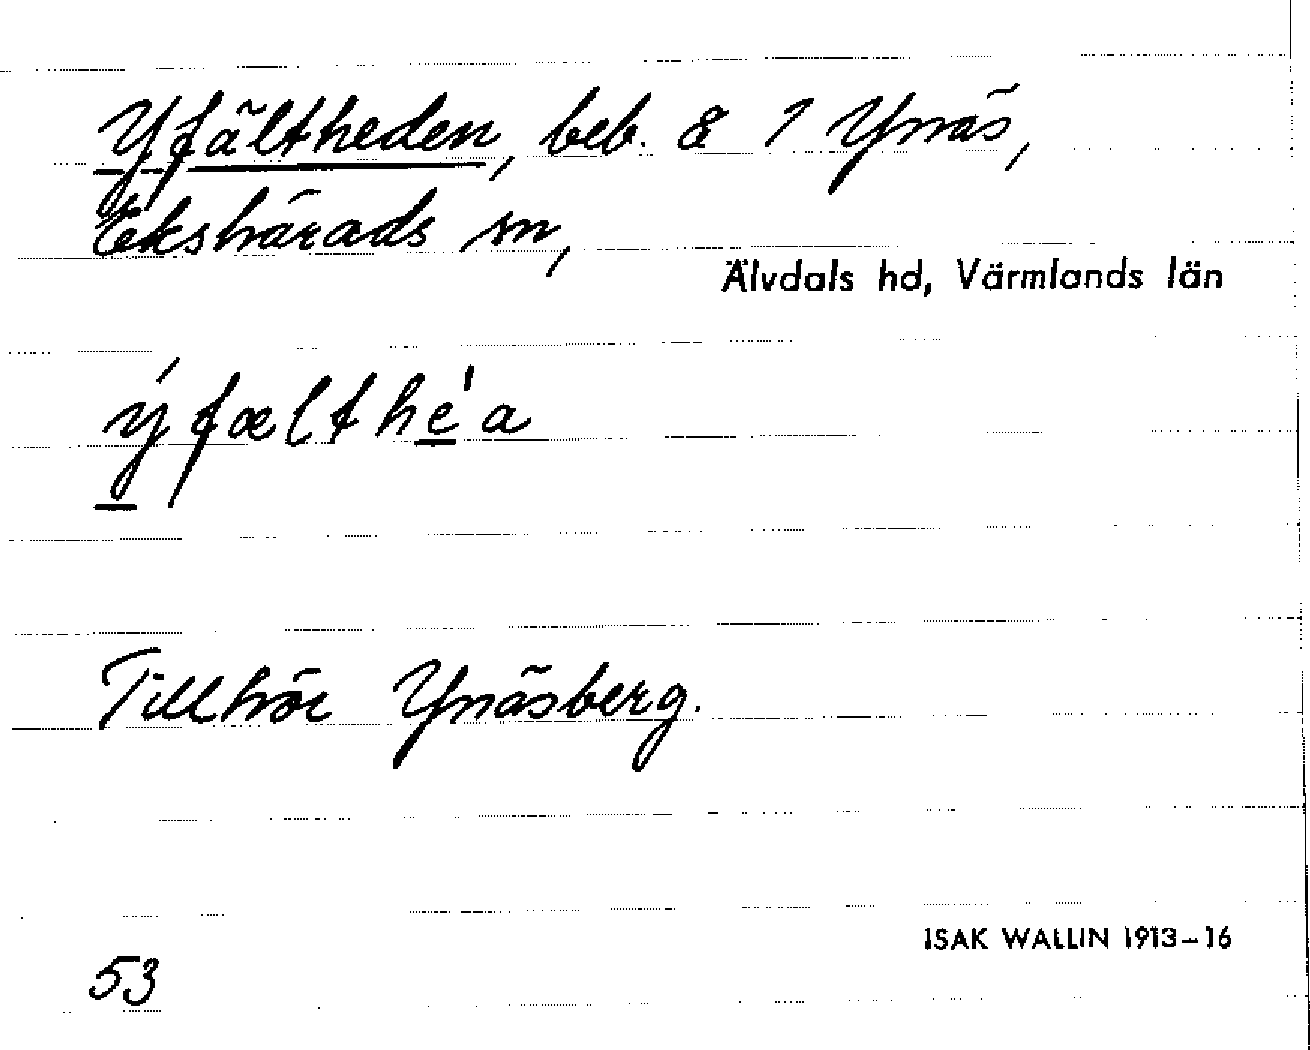 Yfältheden, beb. å 1 Ynäs,
Ekshärads sn,
Älvdals hd, Värmlands län
ýfælthe̍a
Tillhör Ynäsberg.
ISAK WALLIN 1913–16
53